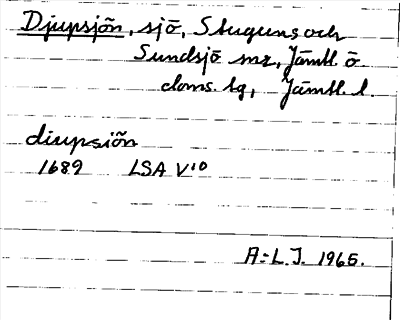 Djupsjön, sjö, Stuguns och
Sundsjö snr, Jämtl. ö.
doms. tg, Jämtl. l.
diupsiön
1689 LSA V10
A-L.J. 1965.